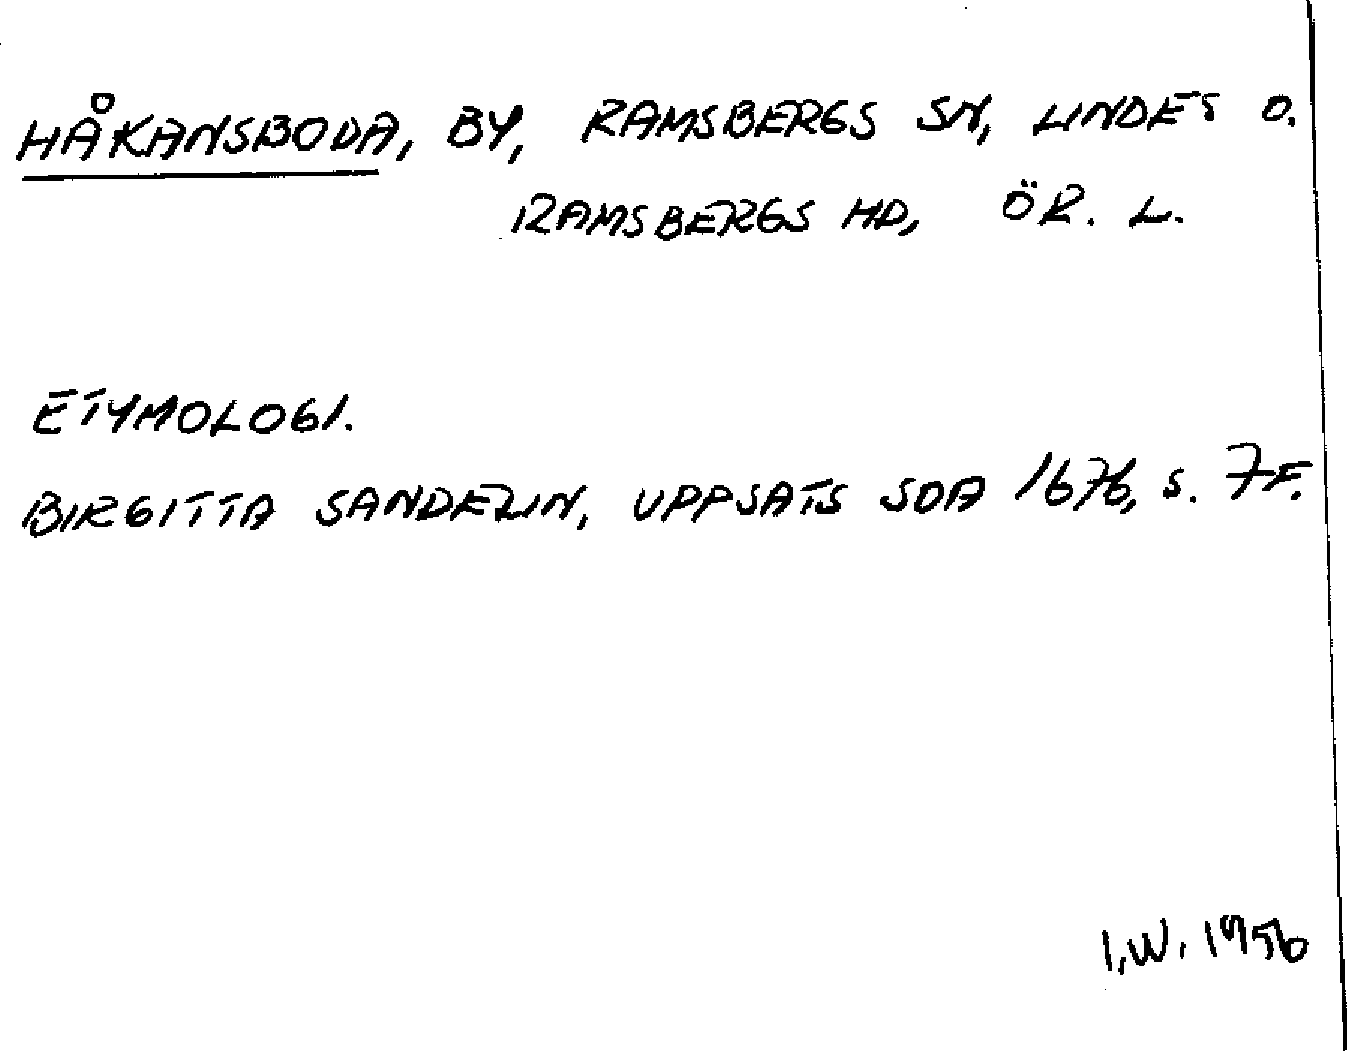 HÅKANSBODA, BY, RAMSBERGS SN, LINDES O.
RAMSBERGS HD, ÖR. L.
ETYMOLOGI.
BIRGITTA SANDELIN, UPPSATS SOA 1676, S. 7 F.
I.W. 1956